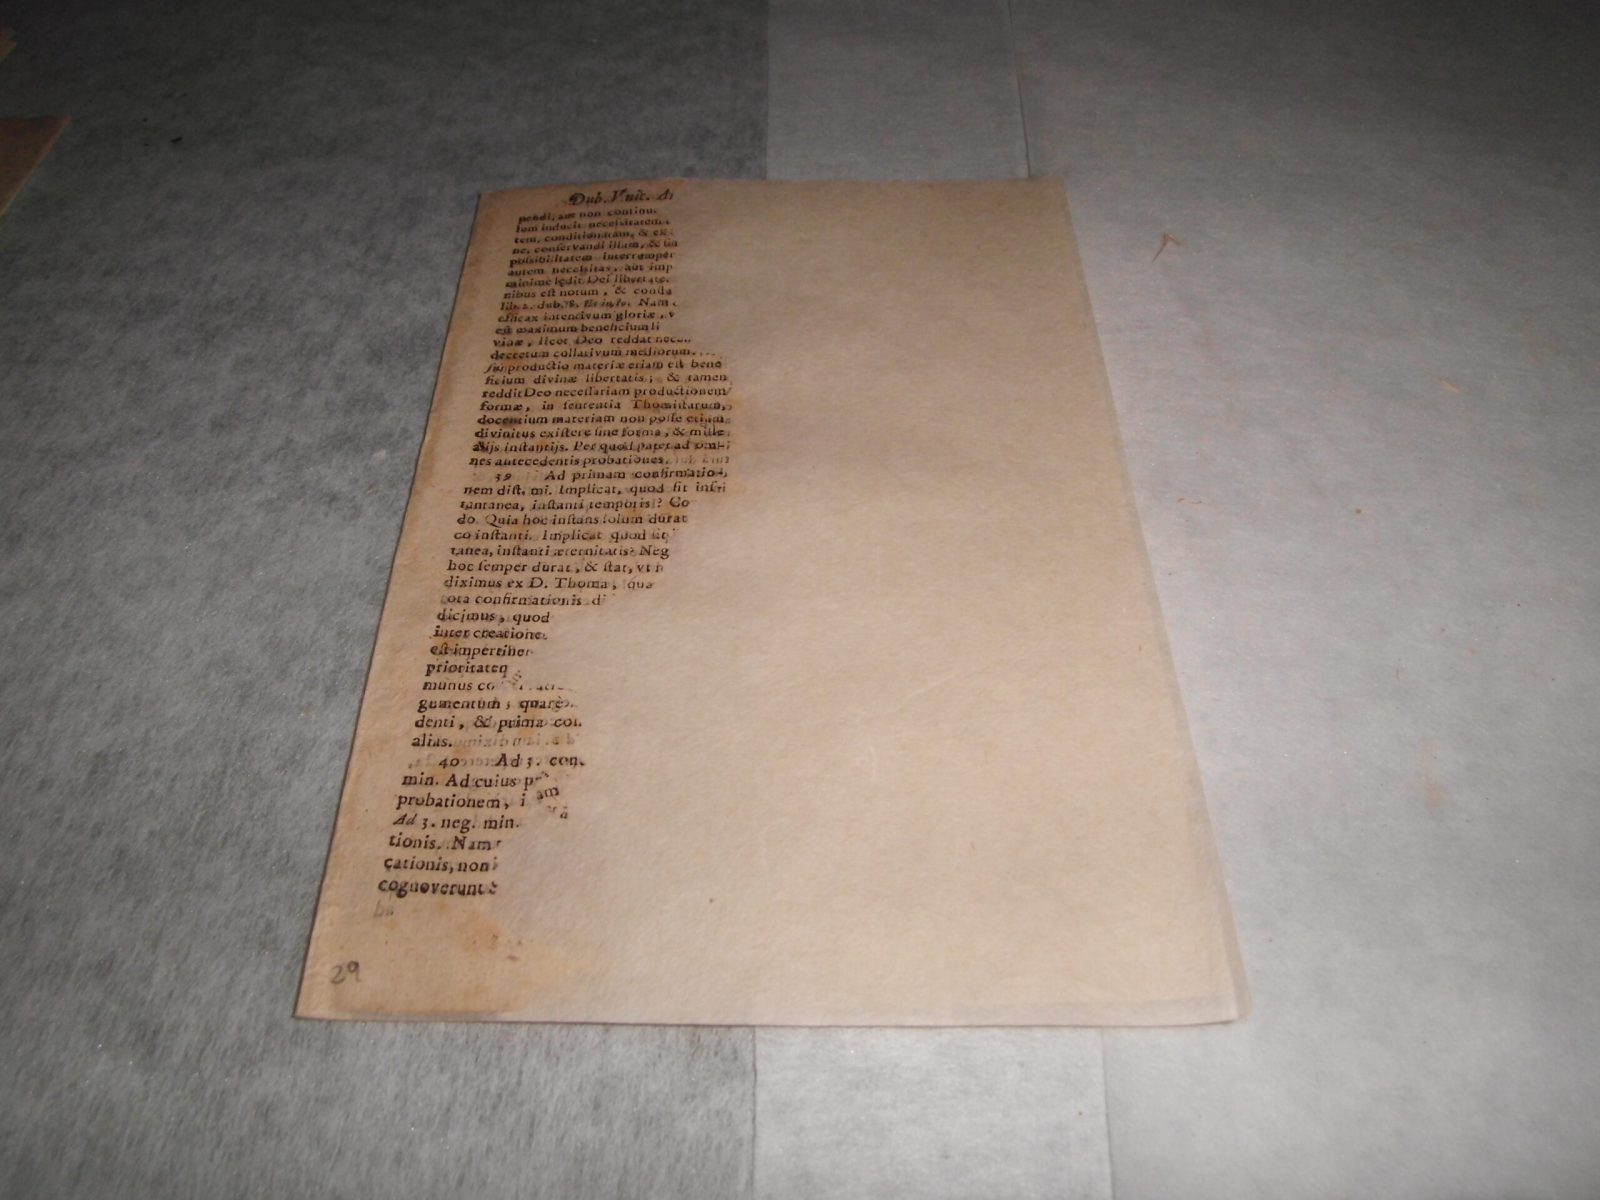 Dub. Vnic.
pendi, aut non continu
sum inducit necessitatem
tem, conditionatam, & ex
ne, conservandi illam, & sin
possibilitatem interromper
autem necessitas, aut imp
minime lędit Dei libertate
nibus est notum, & consta
lib. 2. dub. 8. Nam
efficax intentivum gloriæ, v
est maximum beneficium li
vinæ, licet Deo reddat neces
decretum collativum mediorum
productio materiæ etiam est bene
ficium divinæ libertatis; & tamen
reddit Deo necessariam productionem
formæ, in sententia Thomistarum,
docentium materiam non posse etiam
divinitus existere sine forma, & mille
alijs instantijs. Per quod patet ad om
nes antecedentis probationes.
39 Ad primam confirmatio
nem dist. mi. Implicat, quod sit insta
tantanea, instanti temporis? Co
do. Quia hoc instans solum durat
co instanti. Implicat quod sit
tanea, instanti æternitatis? Neg
hoc semper durat, & stat, vt
diximus ex D. Thoma, qua
tota confirmationis di
dicimus, quod
inter creatione
est impertinen
prioritateq
munus co
gumentum; quare
denti, & prima con
alias.
40 Ad 3. con
min. Ad cuius p
probationem, i
am
Ad 3. neg. min.
tionis. Nam
cationis, non
cognoverunt
29